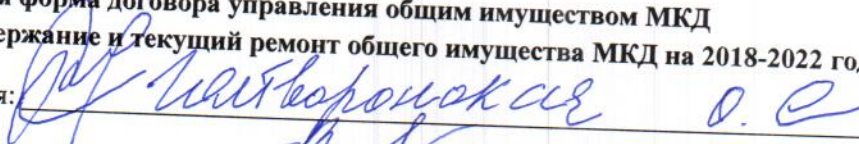 и форма договора управления общим имуществом МКД
ержание и текущий ремонт общего имущества МКД на 2018-2022 го
я: О. С